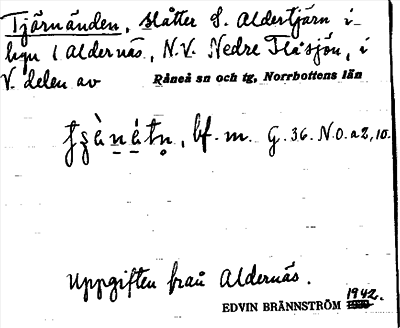 Tjärnänden, slåtter S. Aldertjärn i
hyn 1 Aldernäs, N.V. Nedre Flåsjön, i
V. delen av Råneå sn och tg, Norrbottens län
bf. m. G. 36. N.O. a 2, 10.
Uppgiften från Aldernäs.
EDVIN BRÄNNSTRÖM 1942.